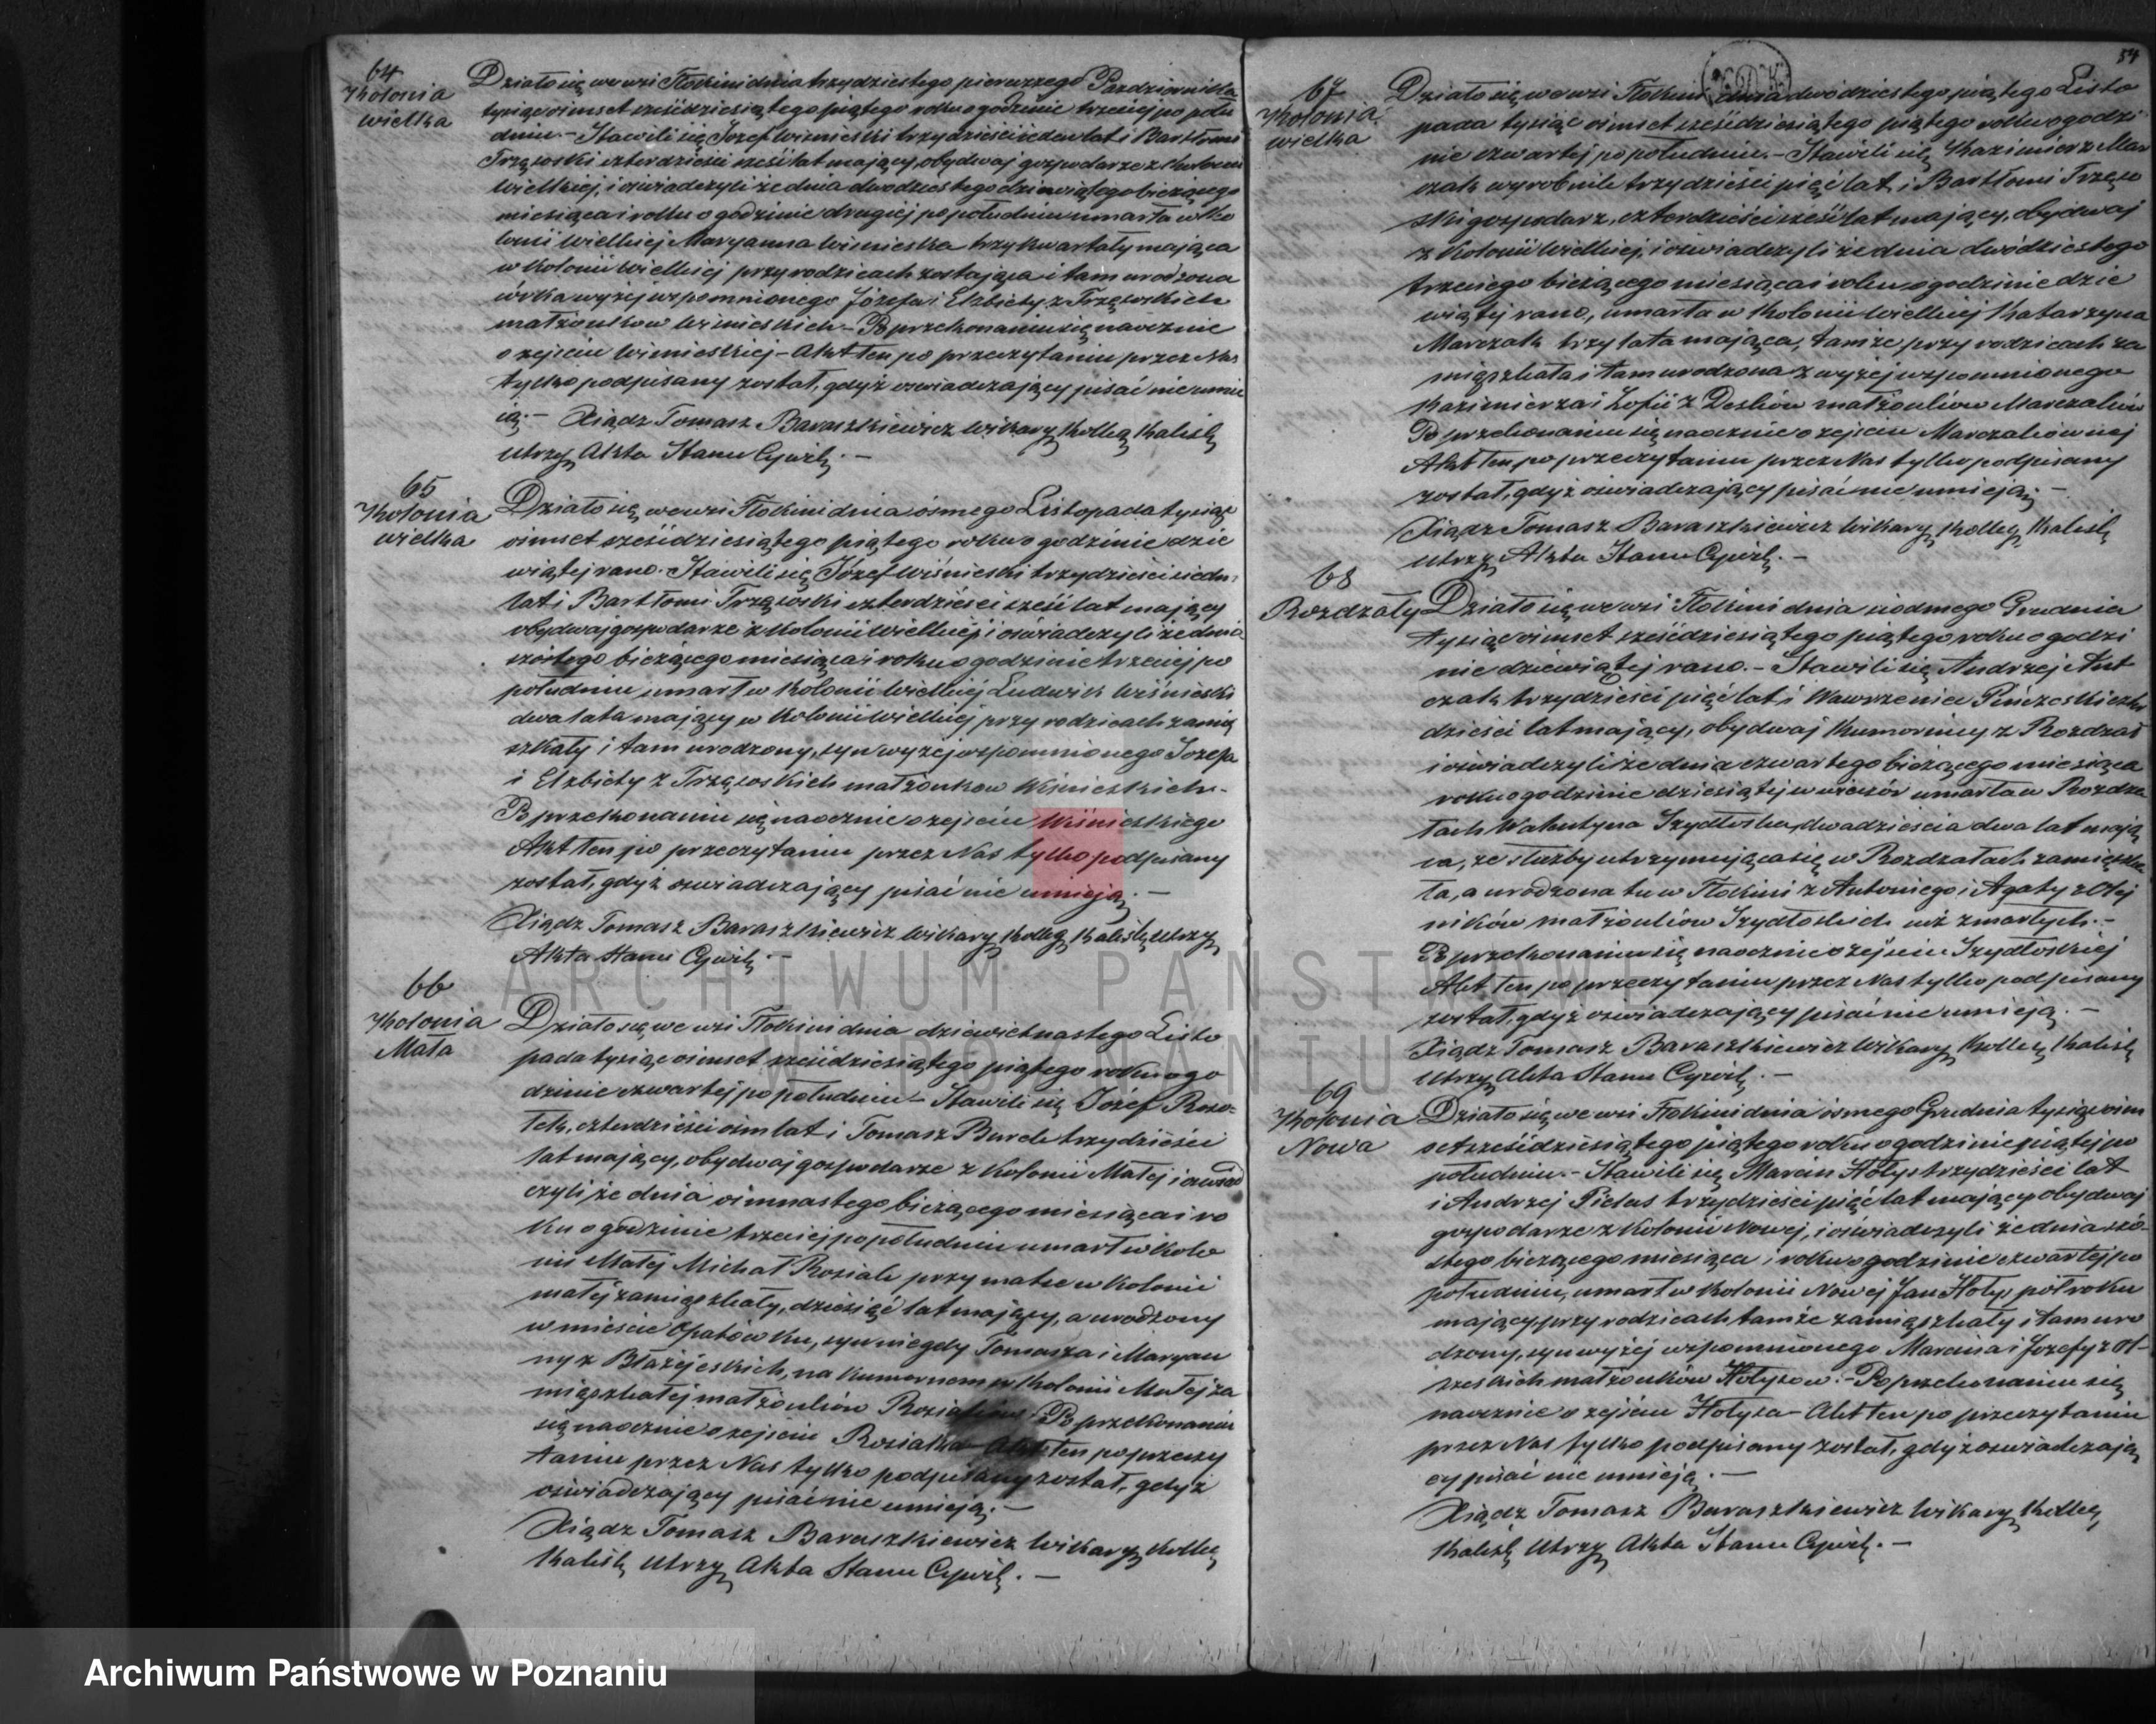 64
Kolonia
wielka
Działo się we wsi Tłokini dnia trzydziestego pierwszego Pazdziernika
tysiąc osmset sześćdziesiątego piątego roku o godzinie trzeciej po połu
dniu. – Stawili się Jozef Wisnieski trzydzieści jeden lat i Bartłomi
Trząsoski czterdzieści sześć lat mający, obydwaj gospodarze z Kolonii
Wielkiej, i oświadczyli że dnia dwudziestego dziewiątego bieżącego
miesiąca i roku o godzinie drugiej po południu umarła w Ko
lonii Wielkiej Maryanna Wisnieska trzy kwartały mająca
w Kolonii Wielkiej przy rodzicach zostająca i tam urodzona
córka wyżej wspomnionego Józefa i Elżbiety z Trząsoskich
małżonkow Wisnieskich – Po przekonaniu się naocznie
o zejściu Wisnieskiej – Akt ten po przeczytaniu przez Nas
tylko podpisany został, gdyż oswiadczający pisać nie umie
ią. – Xiądz Tomasz Baraszkiewicz Wikary Kolleg Kalisk
Utrzy Akta Stanu Cywil. –
65
Kolonia
wielka
Działo się we wsi Tłokini dnia ósmego Listopada tysiąc
osmset sześćdziesiątego piątego roku o godzinie dzie
wiątej rano. Stawili się Józef Wiśnieski trzydzieści siedm
lat i Bartłomi Trząsoski czterdzieści sześć lat mający
obydwaj gospodarze z Kolonii Wielkiej i oświadczyli że dnia
szóstego bieżącego miesiąca i roku o godzinie trzeciej po
południu umarł w Kolonii Wielkiej Ludwik Wiśnieski
dwa lata mający w Kolonii Wielkiej przy rodzicach zamię
szkały i tam urodzony, syn wyżej wspomnionego Jozefa
i Elzbiety z Trząsoskich małżonkow Wisnieskich. –
Po przekonaniu się naocznie o zejściu Wiśnieskiego
Akt ten po przeczytaniu przez Nas tylko podpisany
został, gdyż oswiadczający pisać nie umieją. –
Xiądz Tomasz Baraszkiewicz Wikary Kolleg Kalisk Utrzy
Akta Stanu Cywil. –
66
Kolonia
Mała
Działo się we wsi Tłokini dnia dziewietnastego Listo
pada tysiąc osmset sześćdziesiątego piątego roku o go
dzinie czwartej po południu – Stawili się Jozef
czterdzieści osm lat i Tomasz trzydzieści
lat mający, obydwaj gospodarze z Kolonii Małej i oswiad
czyli że dnia osmnastego bieżącego miesiąca i ro
ku o godzinie trzeciej po południu umarł w Kolo
nii Małej Michał Rosiak przy matce w Kolonii
małej zamięszkały, dziesięć lat mający, a urodzony
w miescie Opatówku, syn niegdy Tomasza i Maryan
ny z Błażejeskich, na Kumornem w Kolonii Małej za
mięszkałej małżonków Rosiaków – Po przekonaniu
się naocznie o zejściu Rosiaka – Akt ten po przeczy
taniu przez Nas tylko podpisany został, gdyż
oswiadczający pisać nie umieją. –
Xiądz Tomasz Baraszkiewicz Wikary Kolleg
Kalisk Utrzy Akta Stanu Cywil. –
54
67
Kolonia
wielka
Działo się we wsi Tłokini dnia dwódziestego piątego Listo
pada tysiąc osmset sześćdziesiątego piątego roku o godzi
nie czwartej po południu. – Stawili się Kazimierz Mar
czak wyrobnik trzydzieści pięć lat, i Bartłomi Trząso
ski gospodarz, czterdzieści sześć lat mający, obydwaj
z Kolonii Wielkiej, i oświadczyli że dnia dwódziestego
trzeciego bieżącego miesiąca i roku o godzinie dzie
wiątej rano, umarła w Kolonii Wielkiej Katarzyna
Marczak trzy lata mająca, tamże przy rodzicach za
mięszkała i tam urodzona z wyżej wspomnionego
Kazimierza i Zofii z Desków małżonków Marczaków
Po przekonaniu się naocznie o zejściu Marczakównej
Akt ten po przeczytaniu przez Nas tylko podpisany
został, gdyż oswiadczający pisać nie umieją. –
Xiądz Tomasz Baraszkiewicz Wikary Kolleg Kalisk
Utrzy Akta Stanu Cywil. –
68
Rozdzały
Działo się we wsi Tłokini dnia siodmego Grudnia
tysiąc osmset sześćdziesiątego piątego roku o godzi
nie dziewiątej rano. – Stawili się Andrzej Ant
czak trzydzieści pięć lat i Wawrzeniec
dzieści lat mający, obydwaj Kumornicy z Rozdzał
i oświadczyli że dnia czwartego bieżącego miesiąca
roku o godzinie dziesiątej w wieczór umarła w Rozdza
łach Walentyna Szydłoska, dwadzieścia dwa lat mają
ca, ze służby utrzymująca się w Rozdzałach zamięszka
ła, a urodzona tu w Tłokini z Antoniego i Agaty z Olej
ników małżonków Szydłoskich już zmarłych. –
Po przekonaniu się naocznie o zejściu Szydłoskiej
Akt ten po przeczytaniu przez Nas tylko podpisany
został, gdyż oswiadczający pisać nie umieją. –
Xiądz Tomasz Baraszkiewicz Wikary Kolleg Kalisk
Utrzy Akta Stanu Cywil. –
69
Kolonia
Nowa
Działo się we wsi Tłokini dnia ósmego Grudnia tysiąc osm
set sześćdziesiątego piątego roku o godzinie piątej po
południu. – Stawili się Marcin Hołys trzydzieści lat
i Andrzej Pielas trzydzieści pięć lat mający obydwaj
gospodarze z Kolonii Nowej, i oświadczyli że dnia szó
stego bieżącego miesiąca i roku o godzinie czwartej po
południu, umarł w Kolonii Nowej Jan Hołys pół roku
mający, przy rodzicach tamże zamięszkały i tam uro
dzony, syn wyżej wspomnionego Marcina i Jozefy z Ol–
szeskich małżonków Hołysow. – Po przekonaniu się
naocznie o zejściu Hołysa – Akt ten po przeczytaniu
przez Nas tylko podpisany został, gdyż oswiadczają
cy pisać nie umieją. –
Xiądz Tomasz Baraszkiewicz Wikary Kolleg
Kalisk Utrzy Akta Stanu Cywil. –
ARCHIWUM PAŃSTWOWE
W POZNANIU
Archiwum Państwowe w Poznaniu